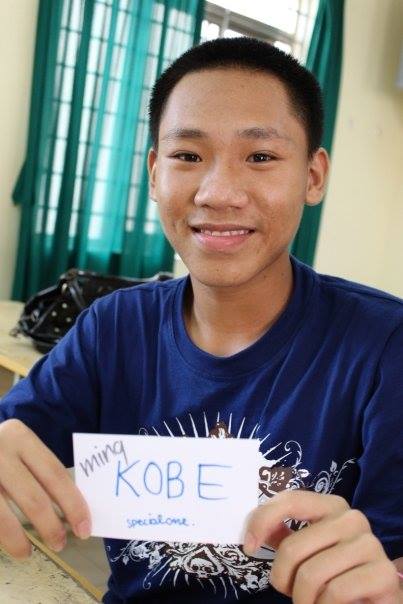 ming
KOBE
specialone.